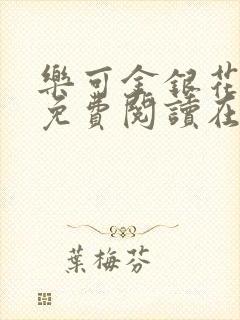 樂可金銀花
免費閱讀在
葉梅芬